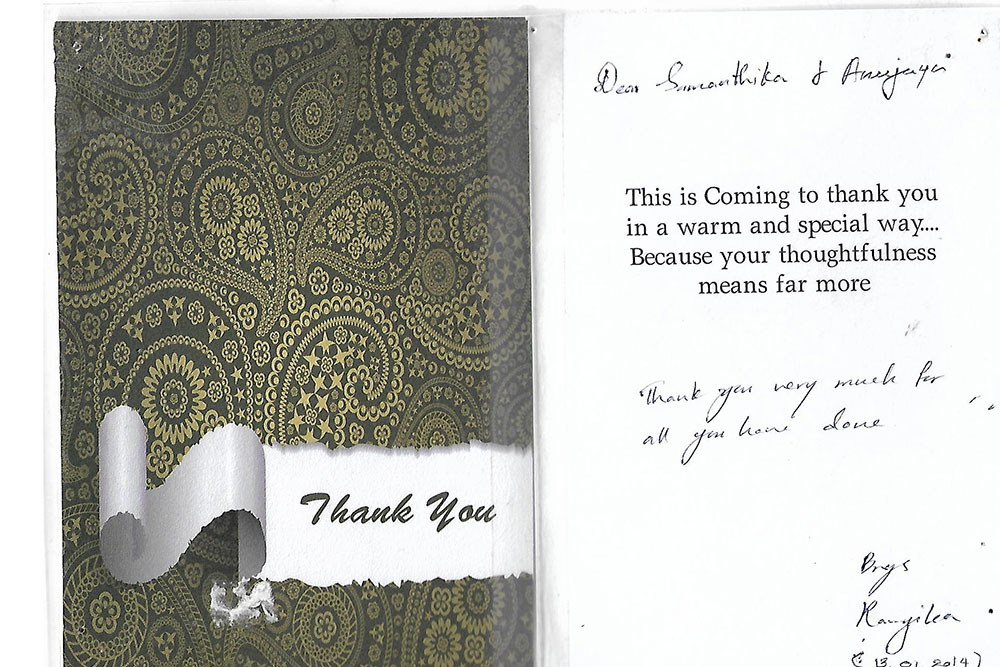 Thank You
Dear Samanthika &
This is Coming to thank you
in a warm and special way....
Because your thoughtfulness
means far more
Thank you very much for
all you have done
(13.01.2014)